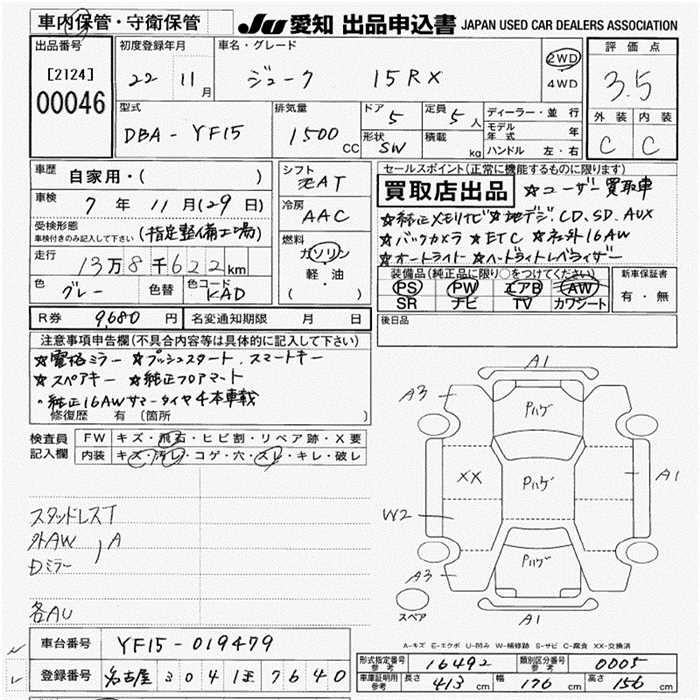 車内保管・守衛保管
JU 愛知 出品申込書 JAPAN USED CAR DEALERS ASSOCIATION
出品番号
[2124]
00046
初度登録年月
22 11月
車名・グレード
ジューク 15RX
2WD
4WD
評価点
3.5
外装 内装
C C
型式
DBA-YF15
排気量
1500cc
ドア 5
形状 SW
定員 5人
積載 kg
ディーラー・並行
モデル年式 年
ハンドル 左・右
車歴 自家用・( )
車検 7年 11月(29日)
受検形態
車検付きのみ記入して下さい (指定整備工場)
走行 13万8千622km
色 グレー 色替 色コード KAD
シフト
AT
冷房
AAC
燃料
ガソリン
軽・油
( )
セールスポイント(正常に機能するものに限ります)
買取店出品 ☆ユーザー買取車
☆純正メモリナビ☆地デジ,CD,SD,AUX
☆バックカメラ ☆ETC ☆社外16AW
☆オートライト☆ヘッドライトレベライザー
装備品(純正品に限り○をつけてください)
PS PW エアB AW
SR ナビ TV カワシート
新車保証書
有・無
R券 9,680円 名変通知期限 月 日
後日品
注意事項申告欄(不具合内容等は具体的に記入して下さい)
☆電格ミラー ☆プッシュスタート,スマートキー
☆スペアキー ☆純正フロアマート
。純正16AWサマータイヤ4本車載
修復歴 有(箇所
検査員記入欄
FW キズ・飛石・ヒビ割・リペア跡・X要
内装 キズ・汚レ・コゲ・穴・スレ・キレ・破レ
スタッドレスT
外AW
Dミラー
A
各AU
A1
A3
Pハゲ
XX
Pハゲ
A1
W2
Pハゲ
A3
スペア
A1
A-キズ E-エクボ U-凹み W-補修跡 S-サビ C-腐食 XX-交換済
車台番号 YF15-019479
登録番号 名古屋 304 7640
形式指定番号参考 16492 類別区分番号参考 0005
車庫証明用参考 長さ 413cm 幅 176cm 高さ 156cm